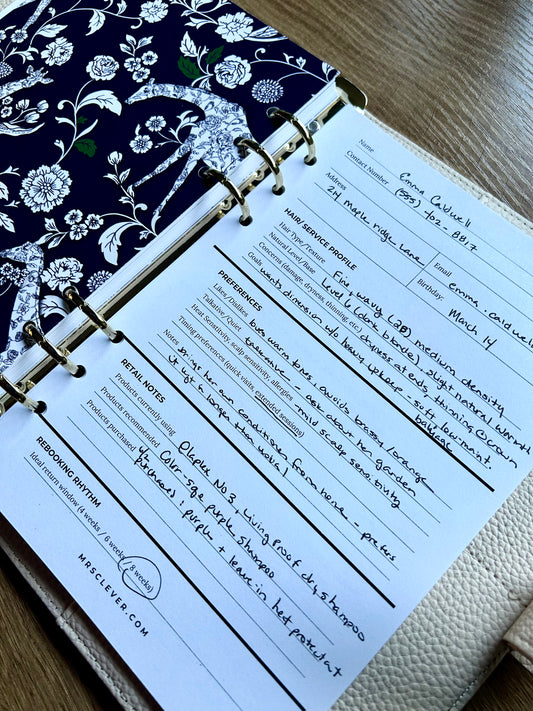 Name Emma Caldwell
Contact Number (555) 702-8817
Address 24 Maple ridge Lane
Email emma.caldwell
Birthday: March 14
HAIR/SERVICE PROFILE
Hair Type/Feature Fine, wavy (2B) medium density
Natural Level/Base Level 6 (dark blonde) slight natural warmth
Concerns (damage, dryness, thinning, etc.) dryness at ends, thinning @ crown
Goals wants dimension w/o heavy upkeep - soft, low-maint.
balayage
PREFERENCES
Likes/Dislikes Loves warm tones, avoids brassy/orange
Talkative/Quiet talkative - ask about her garden
Heat Sensitivity, scalp sensitivity, allergies mild scalp sensitivity
Timing preferences (quick visits, extended sessions)
Notes brings her own conditioner from home - prefers
it if a longer than usual
RETAIL NOTES
Products currently using Olaplex No 3, Living Proof dry shampoo
Products recommended Color safe purple shampoo
Products purchased 4/ purchased, purple + leave in heat protectant
REBOOKING RHYTHM
Ideal return window (4 weeks / 6 weeks / 8 weeks)
MRSCLEVER.COM